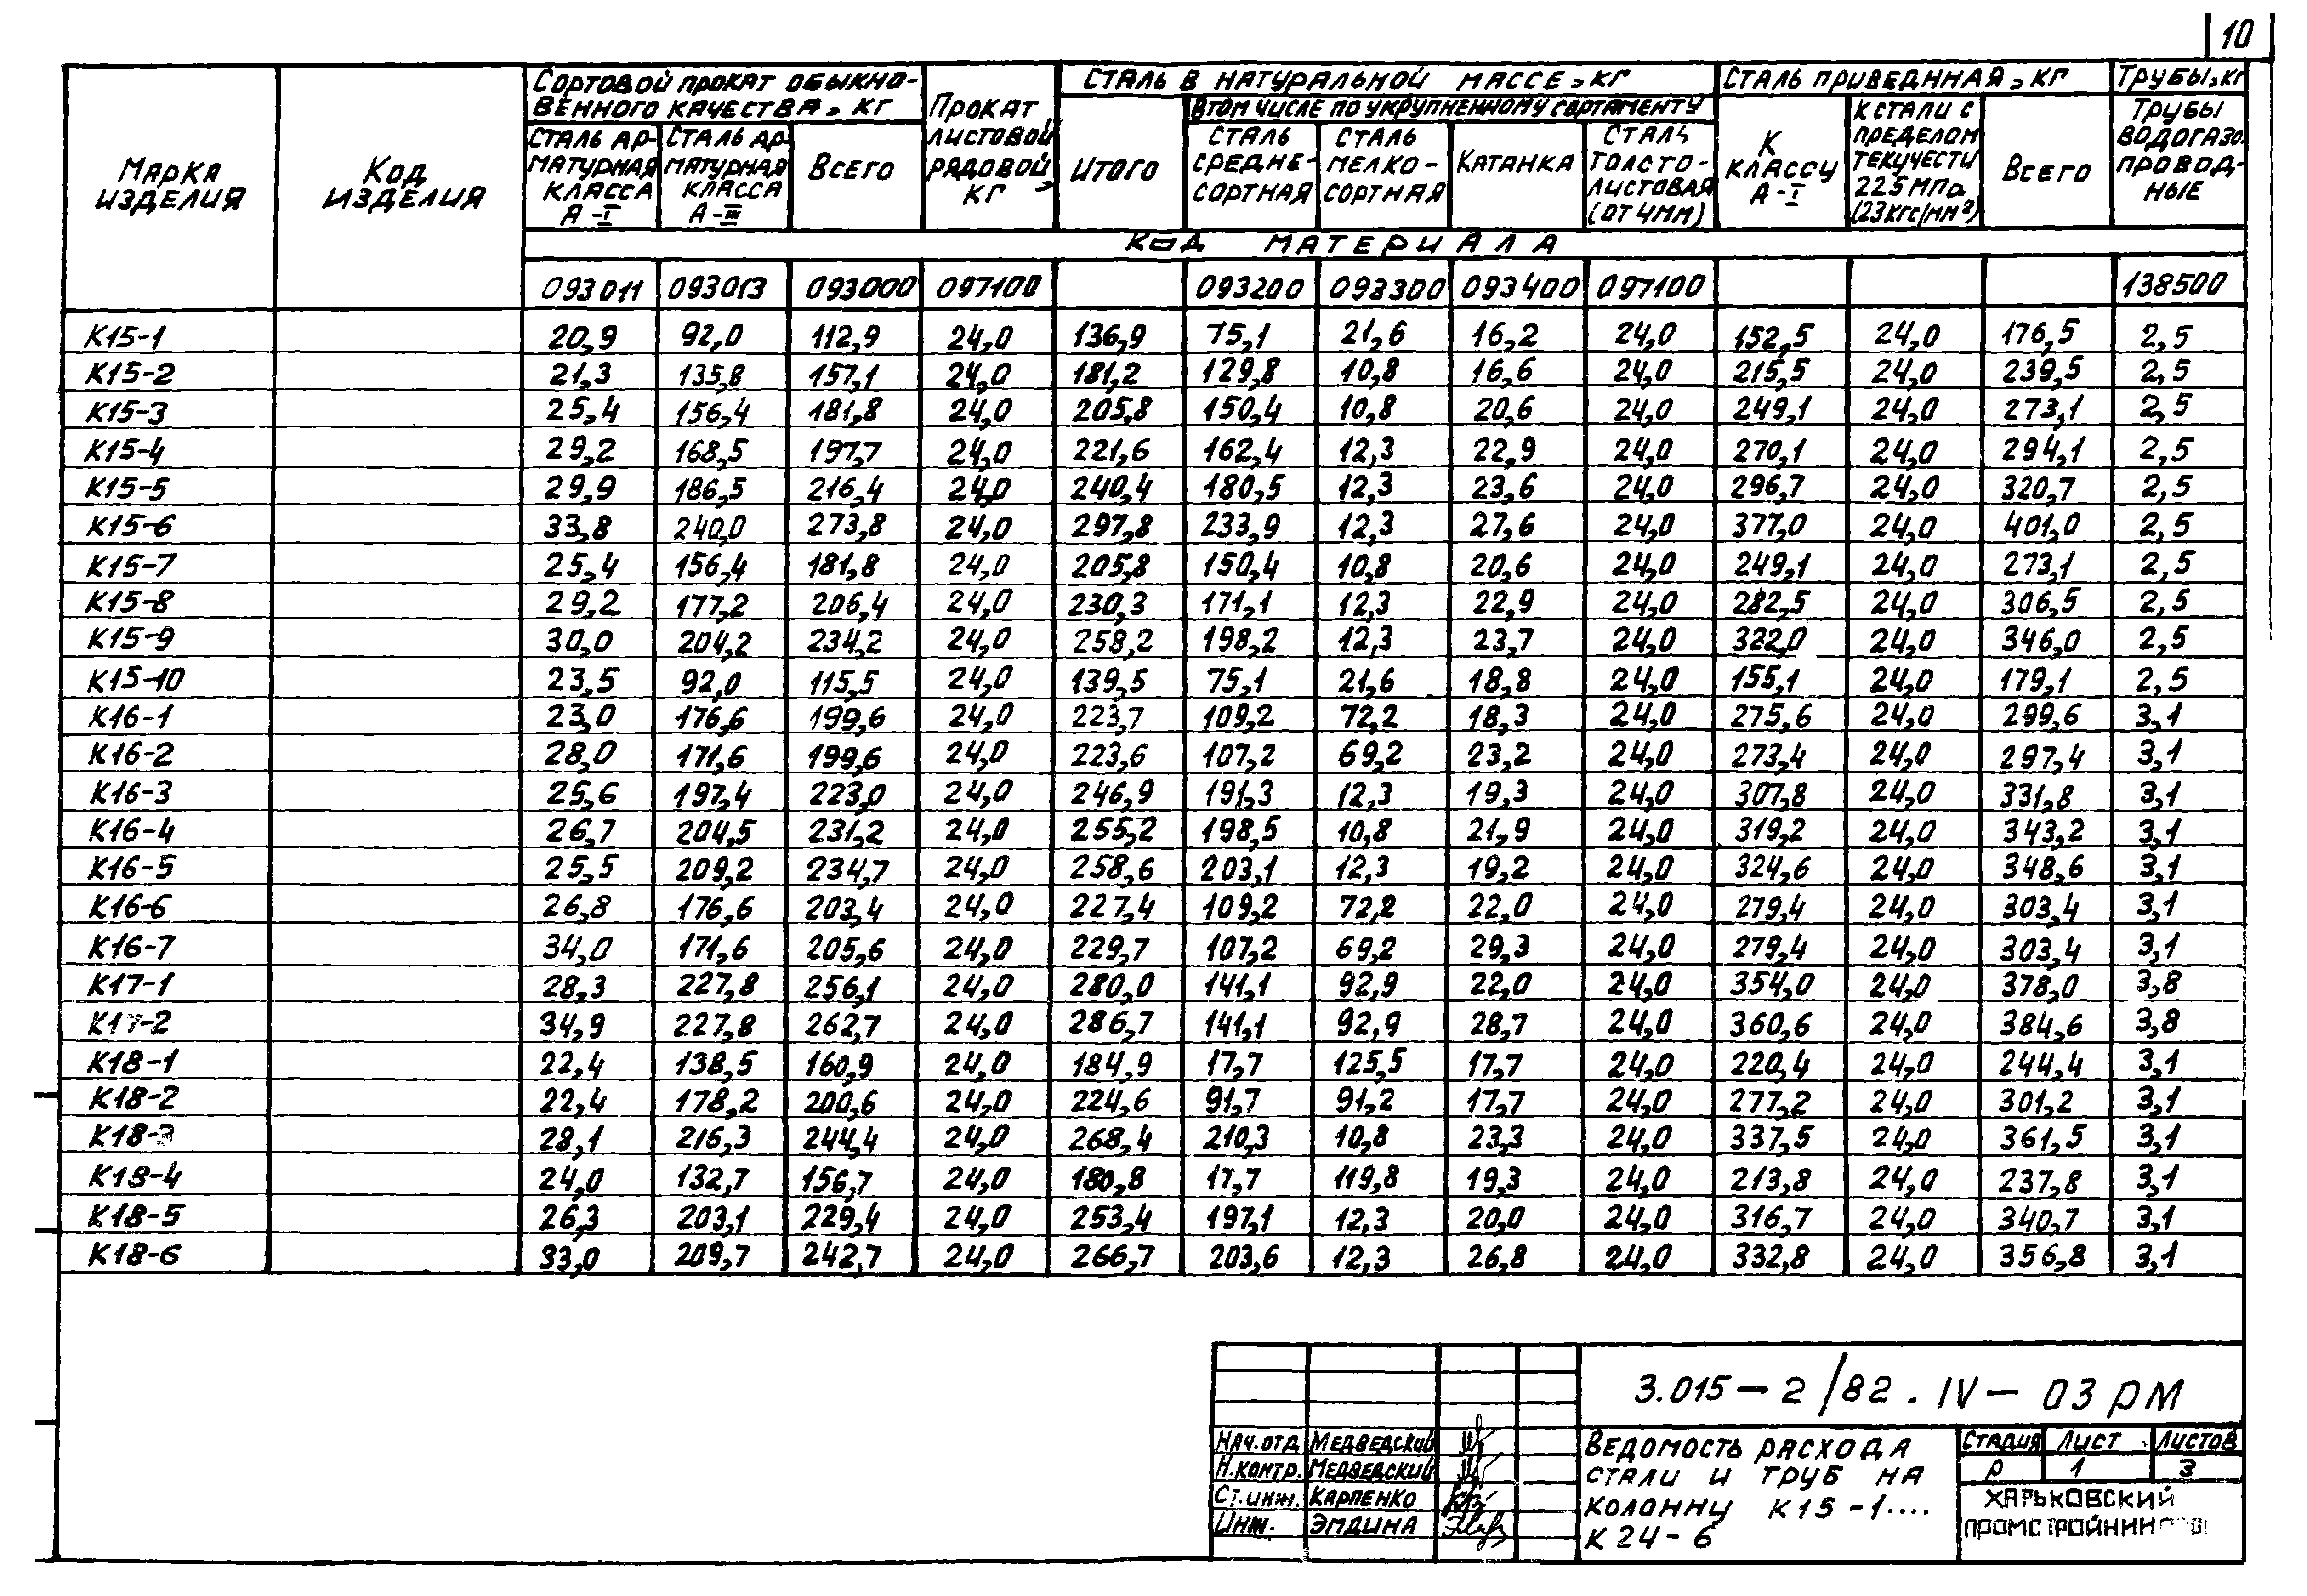 10
МАРКА ИЗДЕЛИЯ | КОД ИЗДЕЛИЯ | СОРТОВОЙ ПРОКАТ ОБЫКНО-ВЕННОГО КАЧЕСТВА, КГ | ПРОКАТ ЛИСТОВОЙ РЯДОВОЙ, КГ | СТАЛЬ В НАТУРАЛЬНОЙ МАССЕ, КГ | СТАЛЬ ПРИВЕДННАЯ, КГ | ТРУБЫ, КГ
СТАЛЬ АР-МАТУРНАЯ КЛАССА А-I | СТАЛЬ АР-МАТУРНАЯ КЛАССА А-III | ВСЕГО | ИТОГО | В ТОМ ЧИСЛЕ ПО УКРУПНЕННОМУ СОРТАМЕНТУ | К КЛАССУ А-I | К СТАЛИ С ПРЕДЕЛОМ ТЕКУЧЕСТИ 225 МПа (23 КГС/ММ²) | ВСЕГО | ТРУБЫ ВОДОГАЗО-ПРОВОД-НЫЕ
СТАЛЬ СРЕДНЕ-СОРТНАЯ | СТАЛЬ МЕЛКО-СОРТНАЯ | КАТАНКА | СТАЛЬ ТОЛСТО-ЛИСТОВАЯ (ОТ 4ММ)
КОД МАТЕРИАЛА
093011 093013 093000 097100 093200 093300 093400 097100 138500
К15-1 20,9 92,0 112,9 24,0 136,9 75,1 21,6 16,2 24,0 152,5 24,0 176,5 2,5
К15-2 21,3 135,8 157,1 24,0 181,2 129,8 10,8 16,6 24,0 215,5 24,0 239,5 2,5
К15-3 25,4 156,4 181,8 24,0 205,8 150,4 10,8 20,6 24,0 249,1 24,0 273,1 2,5
К15-4 29,2 168,5 197,7 24,0 221,6 162,4 12,3 22,9 24,0 270,1 24,0 294,1 2,5
К15-5 29,9 186,5 216,4 24,0 240,4 180,5 12,3 23,6 24,0 296,7 24,0 320,7 2,5
К15-6 33,8 240,0 273,8 24,0 297,8 233,9 12,3 27,6 24,0 377,0 24,0 401,0 2,5
К15-7 25,4 156,4 181,8 24,0 205,8 150,4 10,8 20,6 24,0 249,1 24,0 273,1 2,5
К15-8 29,2 177,2 206,4 24,0 230,3 171,1 12,3 22,9 24,0 282,5 24,0 306,5 2,5
К15-9 30,0 204,2 234,2 24,0 258,2 198,2 12,3 23,7 24,0 322,0 24,0 346,0 2,5
К15-10 23,5 92,0 115,5 24,0 139,5 75,1 21,6 18,8 24,0 155,1 24,0 179,1 2,5
К16-1 23,0 176,6 199,6 24,0 223,7 109,2 72,2 18,3 24,0 275,6 24,0 299,6 3,1
К16-2 28,0 171,6 199,6 24,0 223,6 107,2 69,2 23,2 24,0 273,4 24,0 297,4 3,1
К16-3 25,6 197,4 223,0 24,0 246,9 191,3 12,3 19,3 24,0 307,8 24,0 331,8 3,1
К16-4 26,7 204,5 231,2 24,0 255,2 198,5 10,8 21,9 24,0 319,2 24,0 343,2 3,1
К16-5 25,5 209,2 234,7 24,0 258,6 203,1 12,3 19,2 24,0 324,6 24,0 348,6 3,1
К16-6 26,8 176,6 203,4 24,0 227,4 109,2 72,2 22,0 24,0 279,4 24,0 303,4 3,1
К16-7 34,0 171,6 205,6 24,0 229,7 107,2 69,2 29,3 24,0 279,4 24,0 303,4 3,1
К17-1 28,3 227,8 256,1 24,0 280,0 141,1 92,9 22,0 24,0 354,0 24,0 378,0 3,8
К17-2 34,9 227,8 262,7 24,0 286,7 141,1 92,9 28,7 24,0 360,6 24,0 384,6 3,8
К18-1 22,4 138,5 160,9 24,0 184,9 17,7 125,5 17,7 24,0 220,4 24,0 244,4 3,1
К18-2 22,4 178,2 200,6 24,0 224,6 91,7 91,2 17,7 24,0 277,2 24,0 301,2 3,1
К18-3 28,1 216,3 244,4 24,0 268,4 210,3 10,8 23,3 24,0 337,5 24,0 361,5 3,1
К18-4 24,0 132,7 156,7 24,0 180,8 17,7 119,8 19,3 24,0 213,8 24,0 237,8 3,1
К18-5 26,3 203,1 229,4 24,0 253,4 197,1 12,3 20,0 24,0 316,7 24,0 340,7 3,1
К18-6 33,0 209,7 242,7 24,0 266,7 203,6 12,3 26,8 24,0 332,8 24,0 356,8 3,1
3.015-2/82.IV-03РМ
НАЧ.ОТД МЕДВЕДСКИЙ
Н.КОНТР. МЕДВЕДСКИЙ
СТ.ИНЖ. КАРПЕНКО
ИНЖ. ЭМДИНА
ВЕДОМОСТЬ РАСХОДА
СТАЛИ И ТРУБ НА
КОЛОННУ К15-1....
К24-6
СТАДИЯ ЛИСТ ЛИСТОВ
Р 1 3
ХАРЬКОВСКИЙ